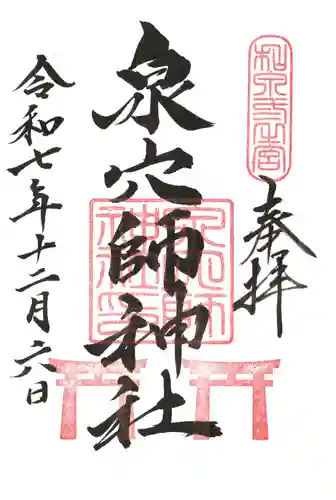 和泉五社二宮
奉拝
泉穴師神社
泉穴師神社印
令和七年十二月六日